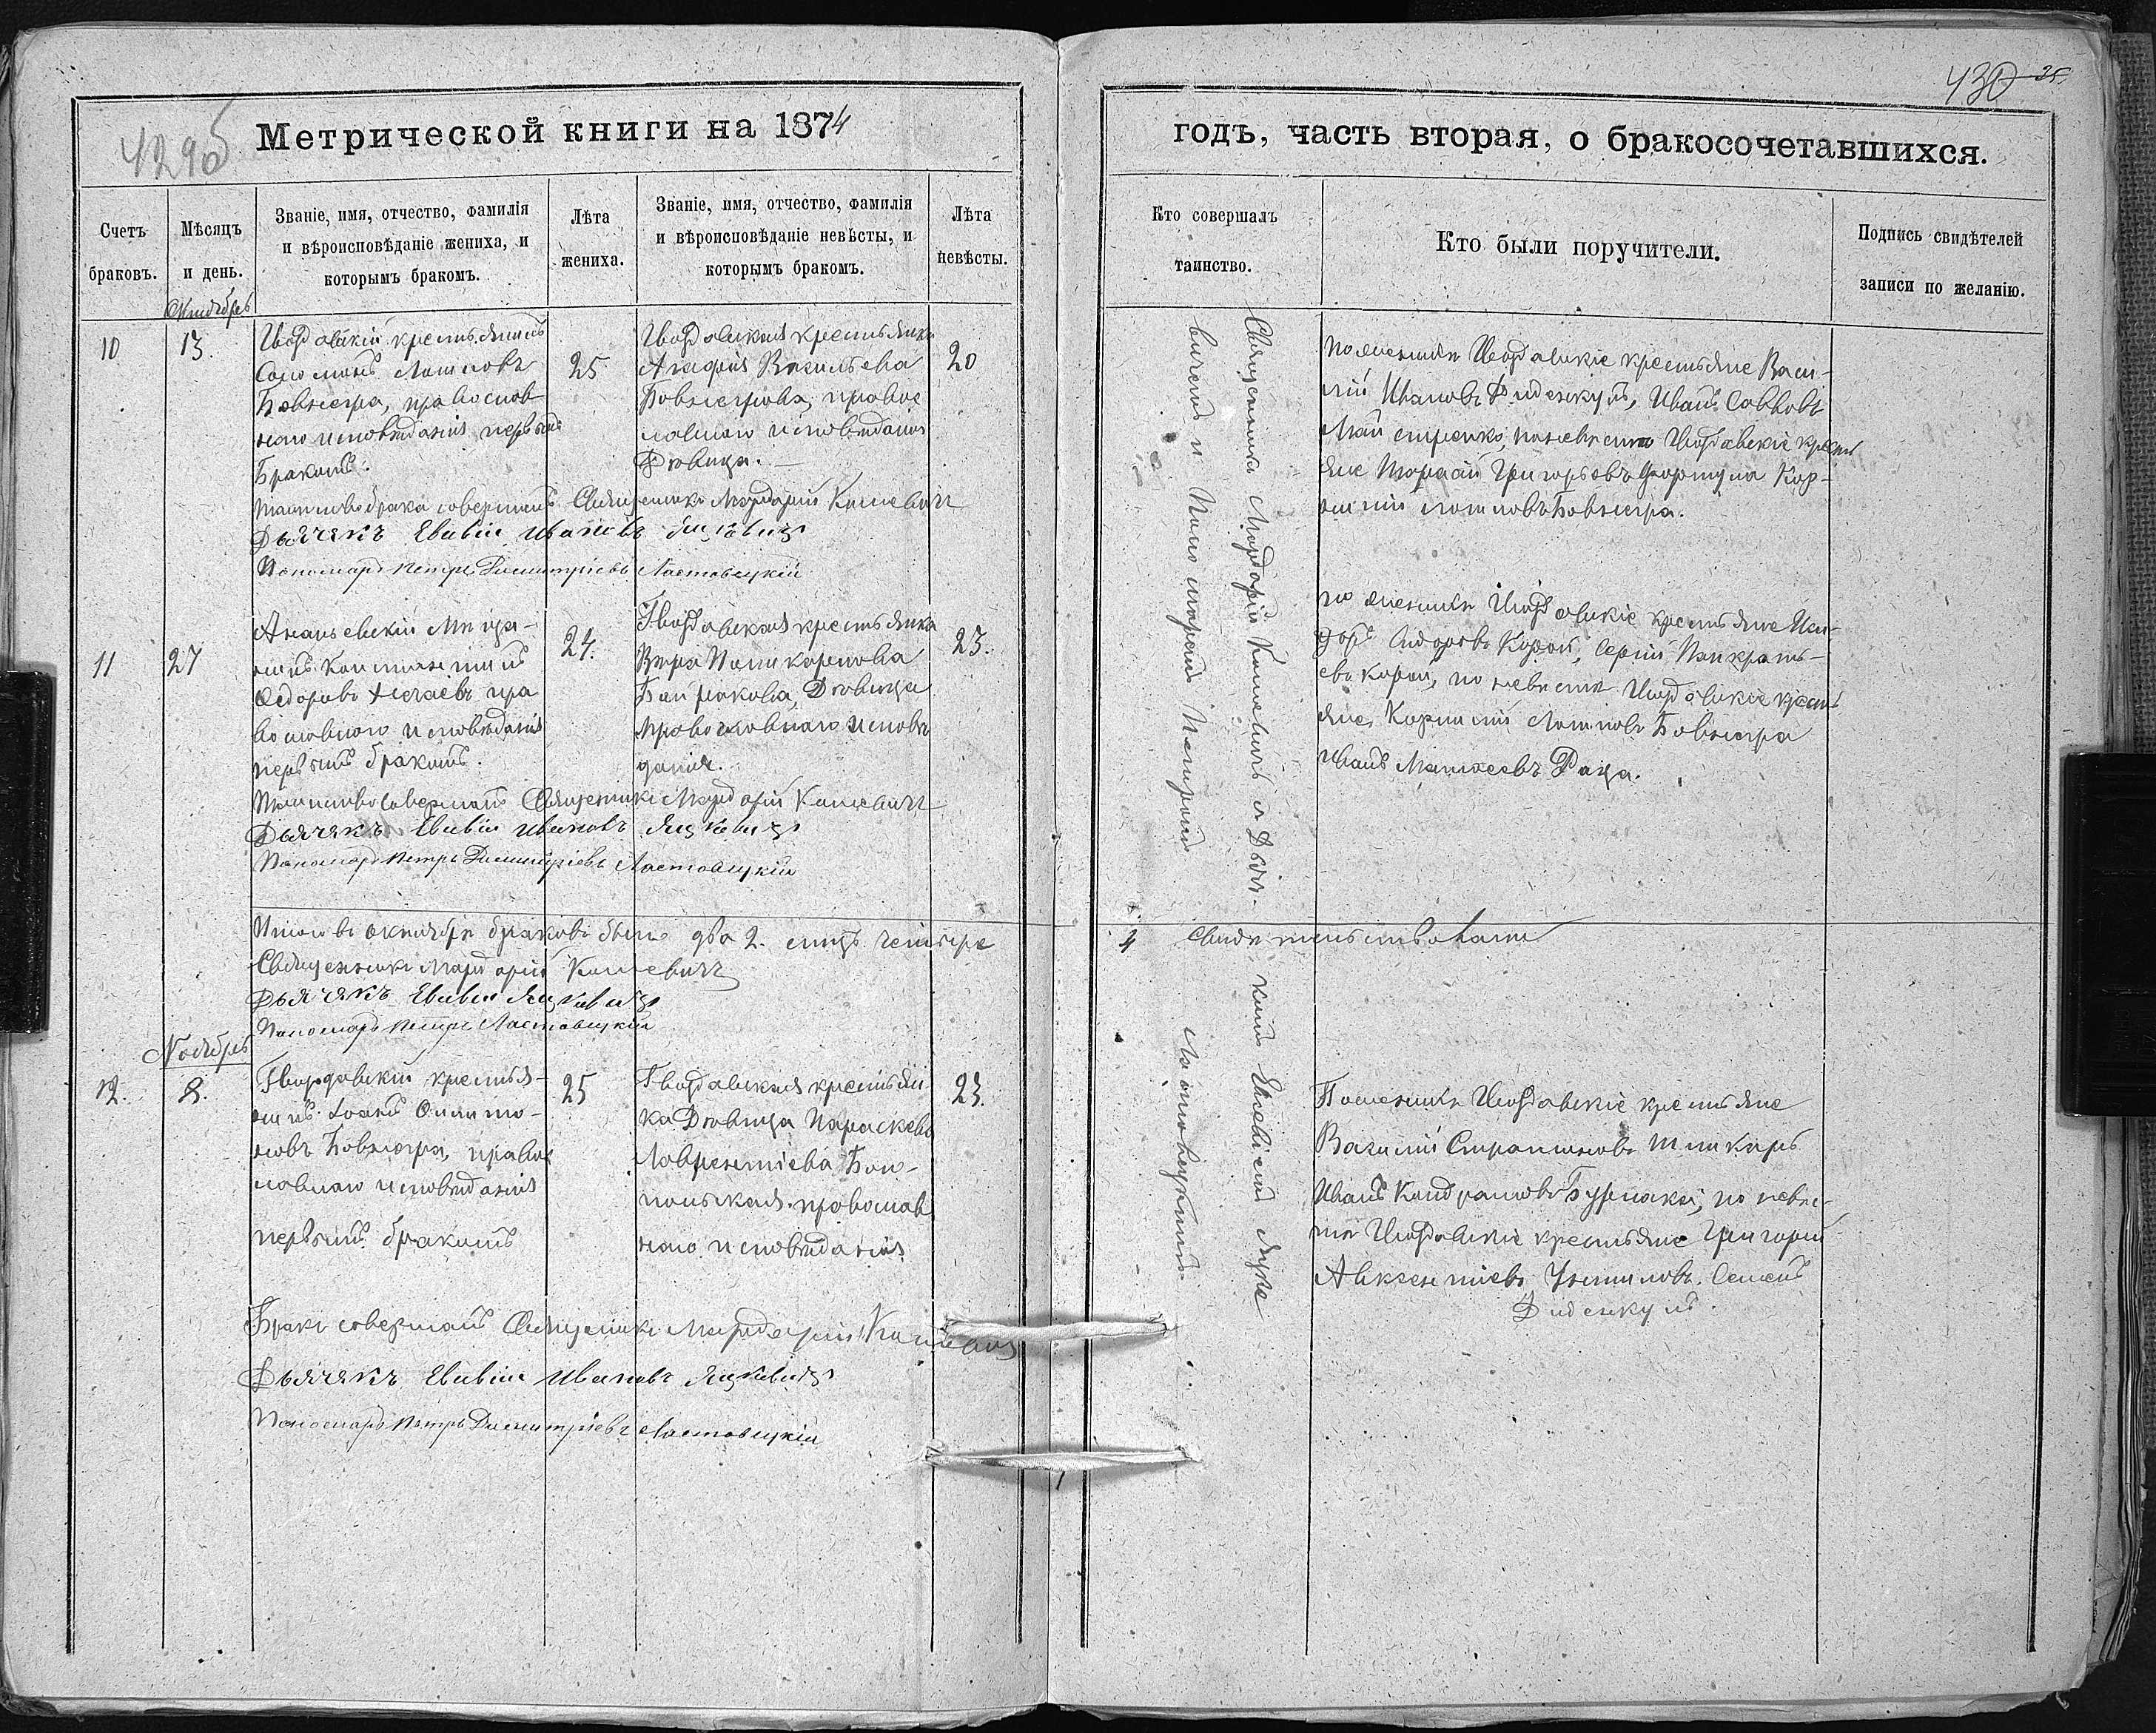 429об
Метрической книги на 1874
Счетъ браковъ.
Мѣсяцъ и день.
Званіе, имя, отчество, фамилія
и вѣроисповѣданіе жениха, и
которымъ бракомъ.
Лѣта
жениха.
Званіе, имя, отчество, фамилія
и вѣроисповѣданіе невѣсты, и
которымъ бракомъ.
Лѣта
невѣсты.
Октябрь
10
13.
Гвоздавскій крестьянинъ
Соломонъ Логиновъ
Бовнегра, православ
наго исповѣданія первымъ
Бракомъ.
25
Гвоздавская крестьянка
Агафія Васильева
Бовнегрова, правос
лавнаго исповѣданія
Дѣвица.
20
Таинство брака совершилъ Священникъ Мардарій
Дьячекъ Ивановъ
Пономарь Петръ Димитріевъ Ластовецкій
11
27
Ананьевскій Мѣща-
нинъ Константинъ
Ѳедоровъ Нечаевъ пра
вославнаго исповѣданія
первымъ бракомъ.
24.
Гвоздавская крестьянка
Вѣра Поликарпова
Байракова, Дѣвица
православнаго исповѣ
данія.
23.
Таинство совершилъ Священникъ Мардарій
Дьячекъ Ивановъ
Пономарь Петръ Димитріевъ Ластовецкій
Итого въ октябрѣ браковъ было два 2. лицъ четыре
Священникъ Мардарій
Дьячекъ
Пономарь Петръ Ластовецкій
Ноябрь
12.
8.
Гвоздавскій крестья-
нинъ Іоанъ
Бовнегра, правос
лавнаго исповѣданія
первымъ бракомъ
25
Гвоздавская крестьян
ка Дѣвица Параскева
Лаврентіева
православ
наго исповѣданія
23.
Бракъ совершилъ Священникъ Мардарій
Дьячекъ Ивановъ
Пономарь Петръ Димитріевъ Ластовецкій
430 25
годъ, часть вторая, о бракосочетавшихся.
Кто совершалъ
таинство.
Кто были поручители.
Подпись свидѣтелей
записи по желанію.
Священникъ Мардарій съ Дьяч-
комъ
и Пономаремъ Петромъ
Ластовецкимъ
По женихѣ Гвоздавскіе крестьяне Васи-
лій Ивановъ Диденкулъ, Иванъ Савковъ
по невѣстѣ Гвоздавскіе кресть
яне Тарасій Григорьевъ Фортуна Кор-
нилій Логиновъ Бовнегра.
по женихѣ Гвоздавскіе крестьяне Иси-
доръ Сидоровъ Корой, Сергій Панкрать-
евъ Корой, по невѣстѣ Гвоздавскіе кресть
яне, Корнилій Логиновъ Бовнегра
Иванъ Матѳеевъ Раца.
4 свидѣтельствовали
По женихѣ Гвоздавскіе крестьяне
Василій
Иванъ Кондратовъ Бурлака, по невѣ-
стѣ Гвоздавскіе крестьяне Григорій
Авксентіевъ Семенъ
Диденкулъ.